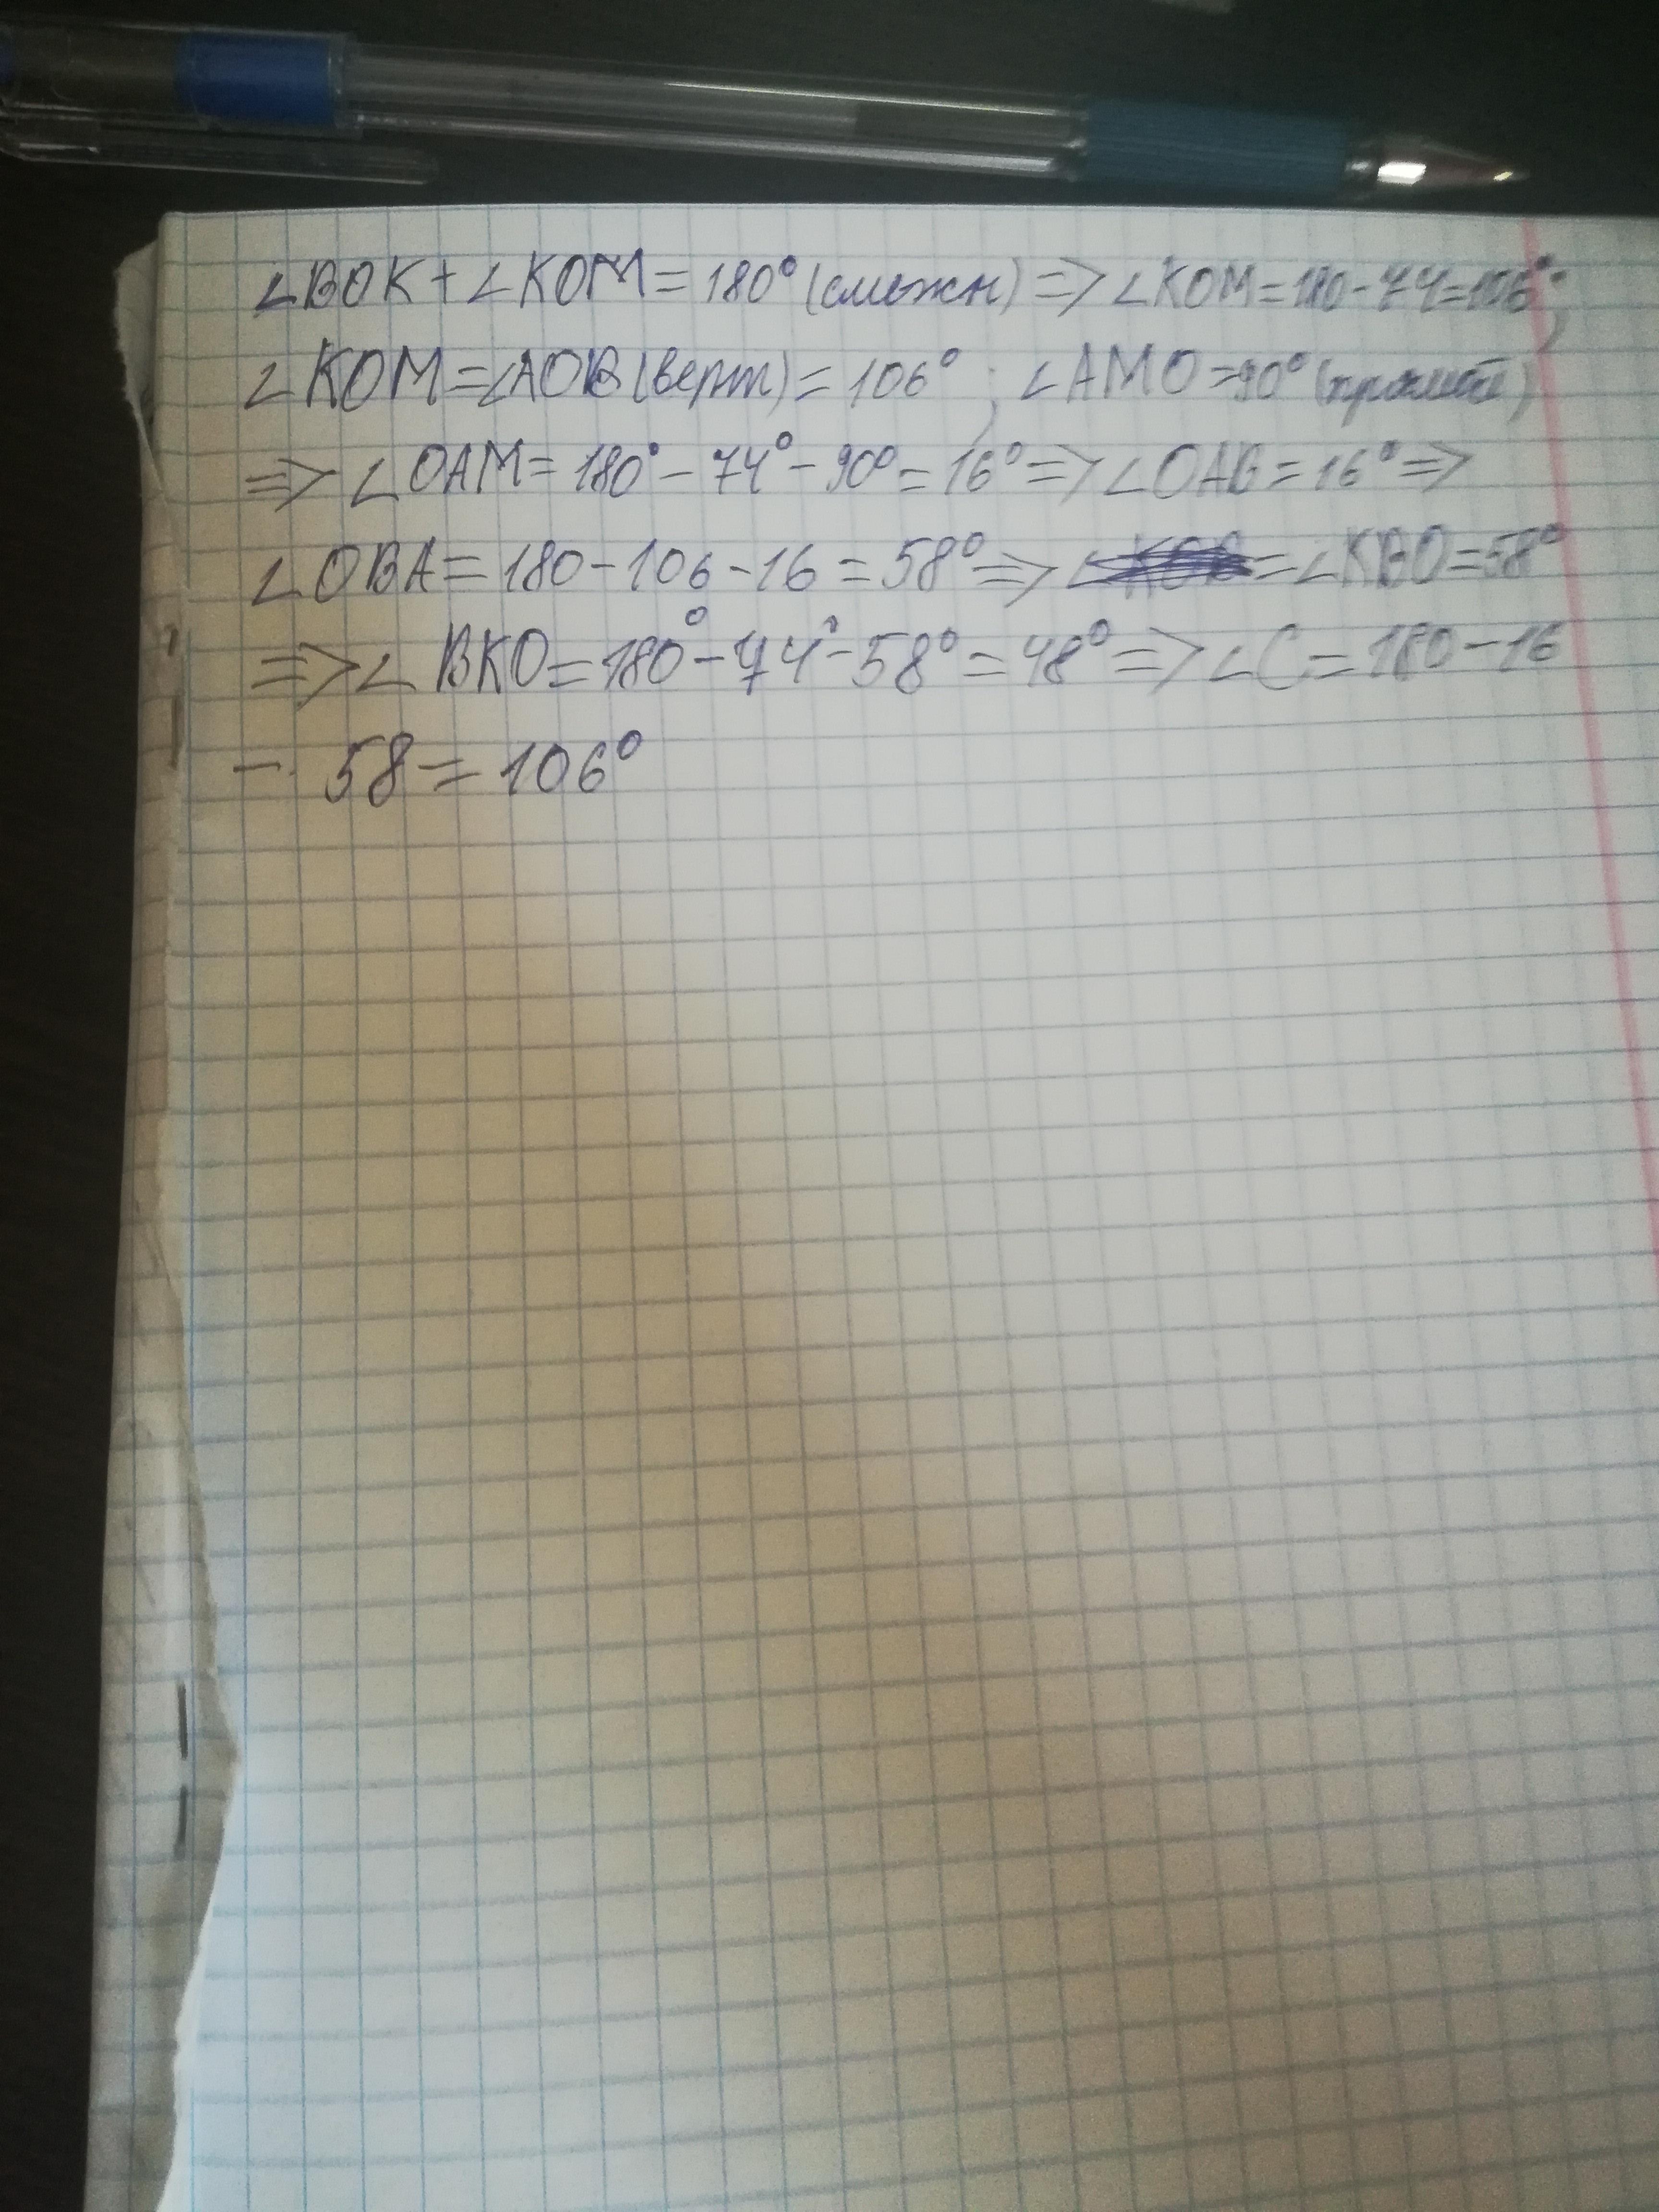 ∠BOK + ∠KOM = 180° (смежн) => ∠KOM = 180 - 74 = 106°;
∠KOM = ∠AOB (верт) = 106° ; ∠AMO = 90°
=> ∠OAM = 180° - 74° - 90° = 16° => ∠OAG = 16° =>
∠OBA = 180 - 106 - 16 = 58° => ∠ = ∠KBO = 58°
=> ∠ BKO = 180° - 74° - 58° = 48° => ∠C = 180 - 16
- 58 = 106°